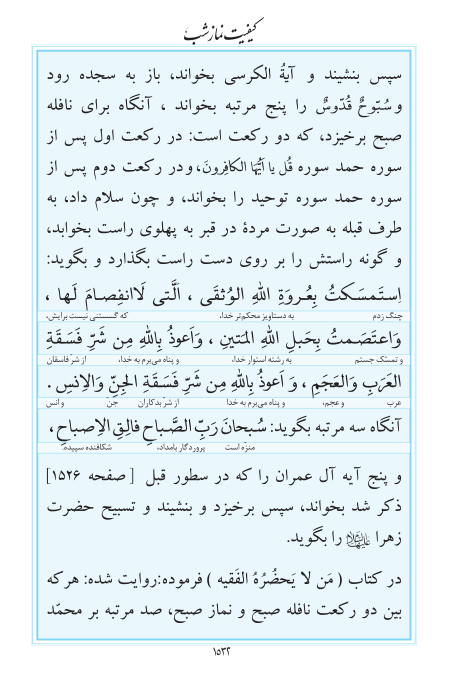 کیفیت نماز شب
سپس بنشیند و آیةُ الکرسی بخواند، باز به سجده رود
و سُبّوحٌ قُدّوسٌ را پنج مرتبه بخواند ، آنگاه برای نافله
صبح برخیزد، که دو رکعت است: در رکعت اول پس از
سوره حمد سوره قُل یا اَیُّهَا الکافِرونَ، و در رکعت دوم پس از
سوره حمد سوره توحید را بخواند، و چون سلام داد، به
طرف قبله به صورت مردهٔ در قبر به پهلوی راست بخوابد،
و گونه راستش را بر روی دست راست بگذارد و بگوید:
اِستَمسَکتُ بِعُروَةِ اللهِ الوُثقَی ، اَلَّتی لَاانفِصامَ لَها ،
چنگ زدم به دستاویز محکم‌تر خدا، که گسستنی نیست برایش،
وَاعتَصَمتُ بِحَبلِ اللهِ المَتینِ ، وَاَعوذُ بِاللهِ مِن شَرِّ فَسَقَةِ
و تمسّک جستم به رشته استوار خدا، و پناه می‌برم به خدا، از شرّ فاسقان
العَرَبِ وَالعَجَمِ ، وَ اَعوذُ بِاللهِ مِن شَرِّ فَسَقَةِ الجِنِّ وَالاِنسِ .
عرب و عجم، و پناه می‌برم به خدا از شرّ بدکاران جنّ و انس
آنگاه سه مرتبه بگوید: سُبحانَ رَبِّ الصَّباحِ فالِقِ الاِصباحِ ،
منزّه است پروردگار بامداد، شکافنده سپیده.
و پنج آیه آل عمران را که در سطور قبل [ صفحه ۱۵۲۶]
ذکر شد بخواند، سپس برخیزد و بنشیند و تسبیح حضرت
زهرا علیهاالسلام را بگوید.
در کتاب ( مَن لا یَحضُرُهُ الفَقیه ) فرموده:روایت شده: هرکه
بین دو رکعت نافله صبح و نماز صبح، صد مرتبه بر محمّد
۱۵۳۲